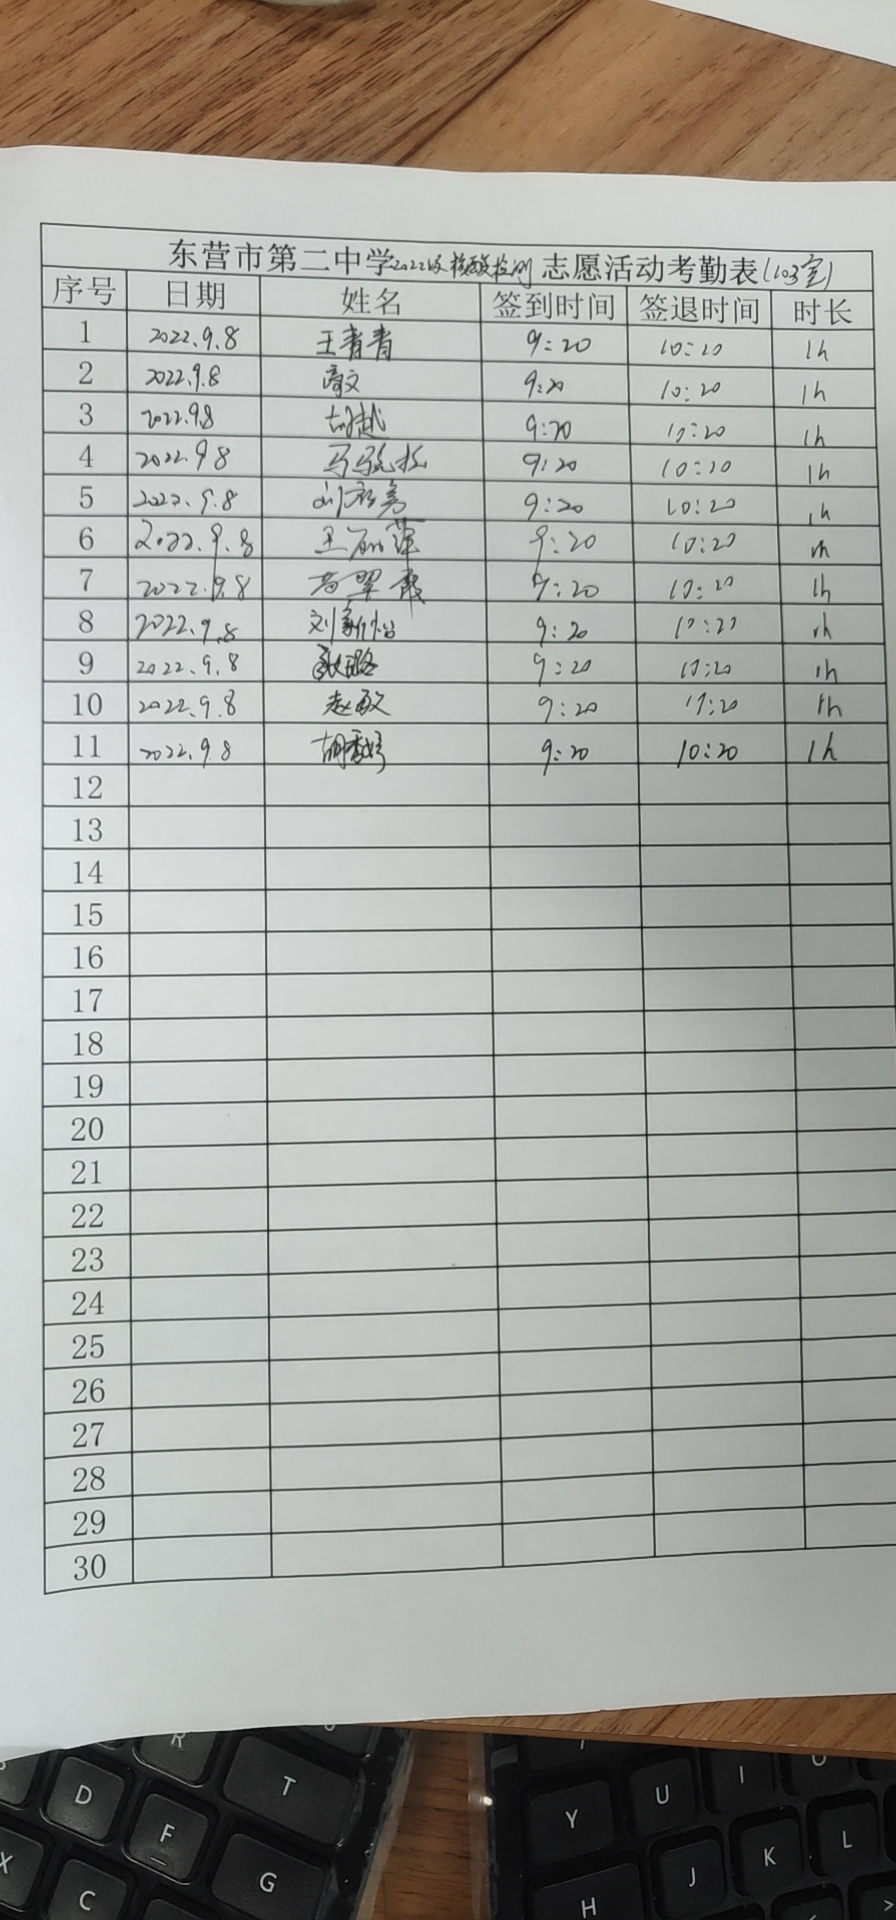 东营市第二中学2022级核酸检测志愿活动考勤表(103室)
序号 日期 姓名 签到时间 签退时间 时长
1 2022.9.8 王青青 9:20 10:20 1h
2 2022.9.8 高文 9:20 10:20 1h
3 2022.9.8 胡越 9:20 10:20 1h
4 2022.9.8 9:20 10:20 1h
5 2022.9.8 9:20 10:20 1h
6 2022.9.8 9:20 10:20 1h
7 2022.9.8 9:20 10:20 1h
8 2022.9.8 刘新怡 9:20 10:20 1h
9 2022.9.8 9:20 10:20 1h
10 2022.9.8 赵敏 9:20 10:20 1h
11 2022.9.8 9:20 10:20 1h
12
13
14
15
16
17
18
19
20
21
22
23
24
25
26
27
28
29
30
R
D T Y U I O
F J K L
X C G H